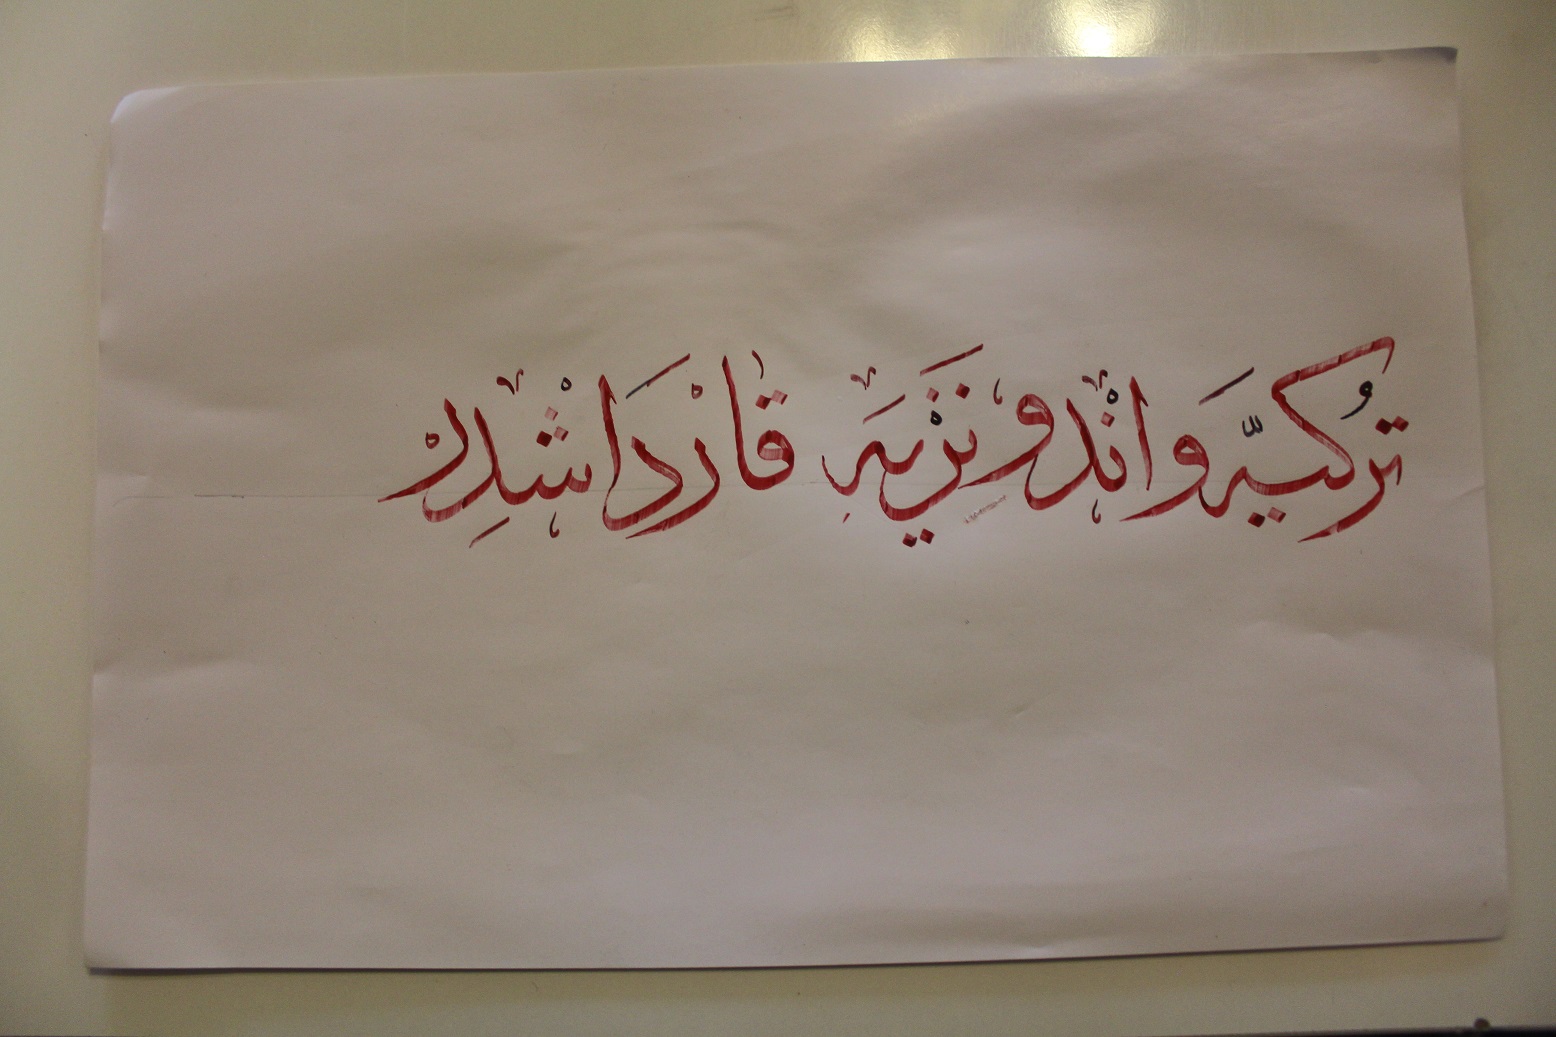 تُركيّه وَ انْدونَزْيَه قَارْدَاشْدِرْ